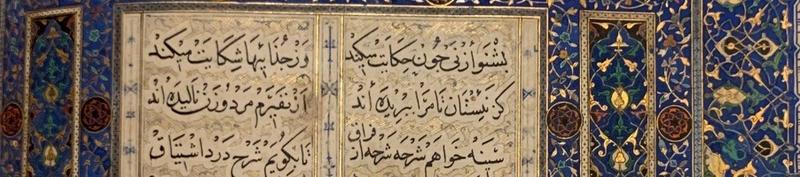 بشنو از نی چون حکایت میکند وز جدائیها شکایت میکند
کز نیستان تا مرا ببریده اند از نفیرم مرد و زن نالیده اند
سینه خواهم شرحه شرحه از فراق تا بگویم شرح درد اشتیاق